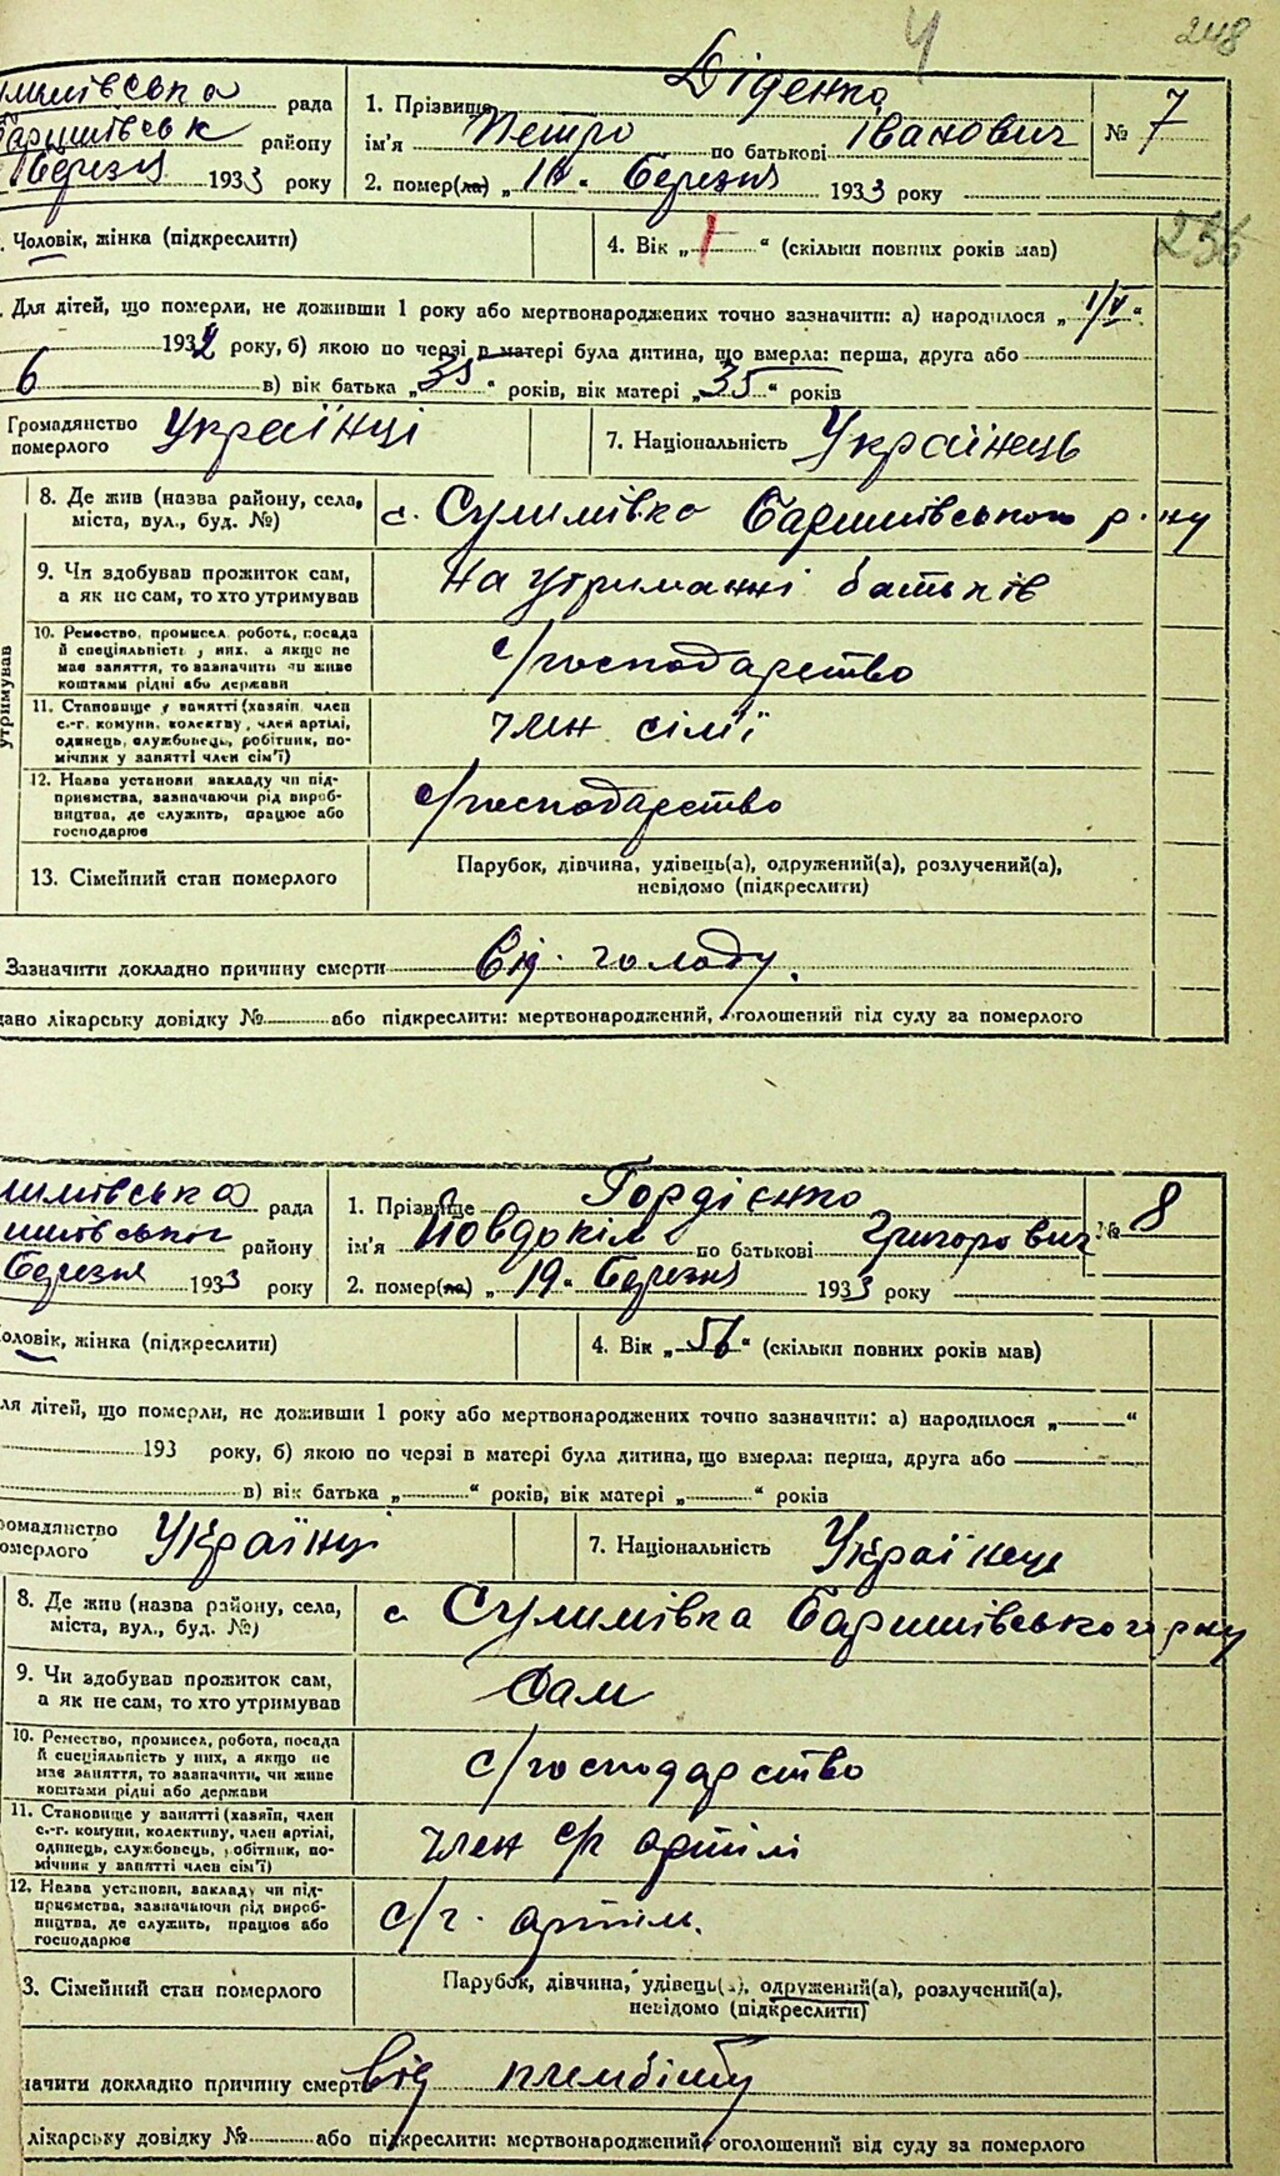 4 248
Діденко
улимівська рада 1. Прізвище
Баришівськ району ім'я Петро по батькові Іванович № 7
Березня 1933 року 2. помер(ла) „ “ Березня 1933 року
Чоловік, жінка (підкреслити) 4. Вік „ “ (скільки повних років мав) 236
Для дітей, що померли, не доживши 1 року або мертвонароджених точно зазначити: а) народилося „1/V“
1932 року, б) якою по черзі в матері була дитина, що вмерла: перша, друга або
6 в) вік батька „35“ років, вік матері „35“ років
Громадянство померлого Українці 7. Національність Українець
8. Де жив (назва району, села, міста, вул., буд. №) с. Сулимівка Баришівського р-ну
9. Чи здобував прожиток сам, а як не сам, то хто утримував На утриманні батьків
утримував
10. Ремество, промисел, робота, посада й спеціяльність у них, а якщо не має заняття, то зазначити чи живе коштами рідні або держави с/господарство
11. Становище у занятті (хазяїн, член с.-г. комуни, колективу, член артілі, одинець, службовець, робітник, помічник у занятті член сім'ї) член сім'ї
12. Назва установи, закладу чи підприємства, зазначаючи рід виробництва, де служить, працює або господарює с/господарство
13. Сімейний стан померлого Парубок, дівчина, удівець(а), одружений(а), розлучений(а), невідомо (підкреслити)
Зазначити докладно причину смерти Від голоду.
дано лікарську довідку № або підкреслити: мертвонароджений, оголошений від суду за померлого
улимівська рада 1. Прізвище Гордієнко
шівського району ім'я Йовдоким по батькові Григорович № 8
Березня 1933 року 2. помер(ла) „19“ Березня 1933 року
Чоловік, жінка (підкреслити) 4. Вік „56“ (скільки повних років мав)
ля дітей, що померли, не доживши 1 року або мертвонароджених точно зазначити: а) народилося „ “
193 року, б) якою по черзі в матері була дитина, що вмерла: перша, друга або
в) вік батька „ “ років, вік матері „ “ років
ромадянство померлого Українці 7. Національність Українець
8. Де жив (назва району, села, міста, вул., буд. №) с Сулимівка Баришівського р ну
9. Чи здобував прожиток сам, а як не сам, то хто утримував Сам
10. Ремество, промисел, робота, посада й спеціяльність у них, а якщо не має заняття, то зазначити, чи живе коштами рідні або держави с/господарство
11. Становище у занятті (хазяїн, член с.-г. комуни, колективу, член артілі, одинець, службовець, робітник, помічник у занятті член сім'ї) член с/г артілі
12. Назва установи, закладу чи підприємства, зазначаючи рід виробництва, де служить, працює або господарює с/г. артіль.
3. Сімейний стан померлого Парубок, дівчина, удівець(а), одружений(а), розлучений(а), невідомо (підкреслити)
начити докладно причину смерт Від
лікарську довідку № або підкреслити: мертвонароджений, оголошений від суду за померлого